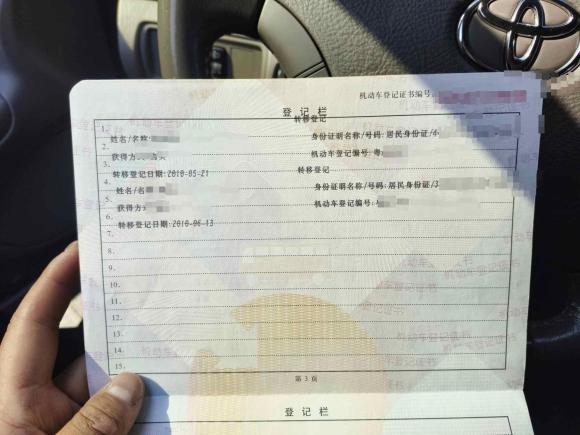 机动车登记证书编号:
登记栏
转移登记
1.
姓名/名称:
身份证明名称/号码:居民身份证/4
2.
获得方
机动车登记编号:粤
3.
转移登记日期:2010-05-21
转移登记
4.
姓名/名
身份证明名称/号码:居民身份证/3
5.
获得方
机动车登记编号:
6.
转移登记日期:2010-06-13
7.
8.
9.
10.
11.
12.
13.
14.
15.
第3页
登记栏